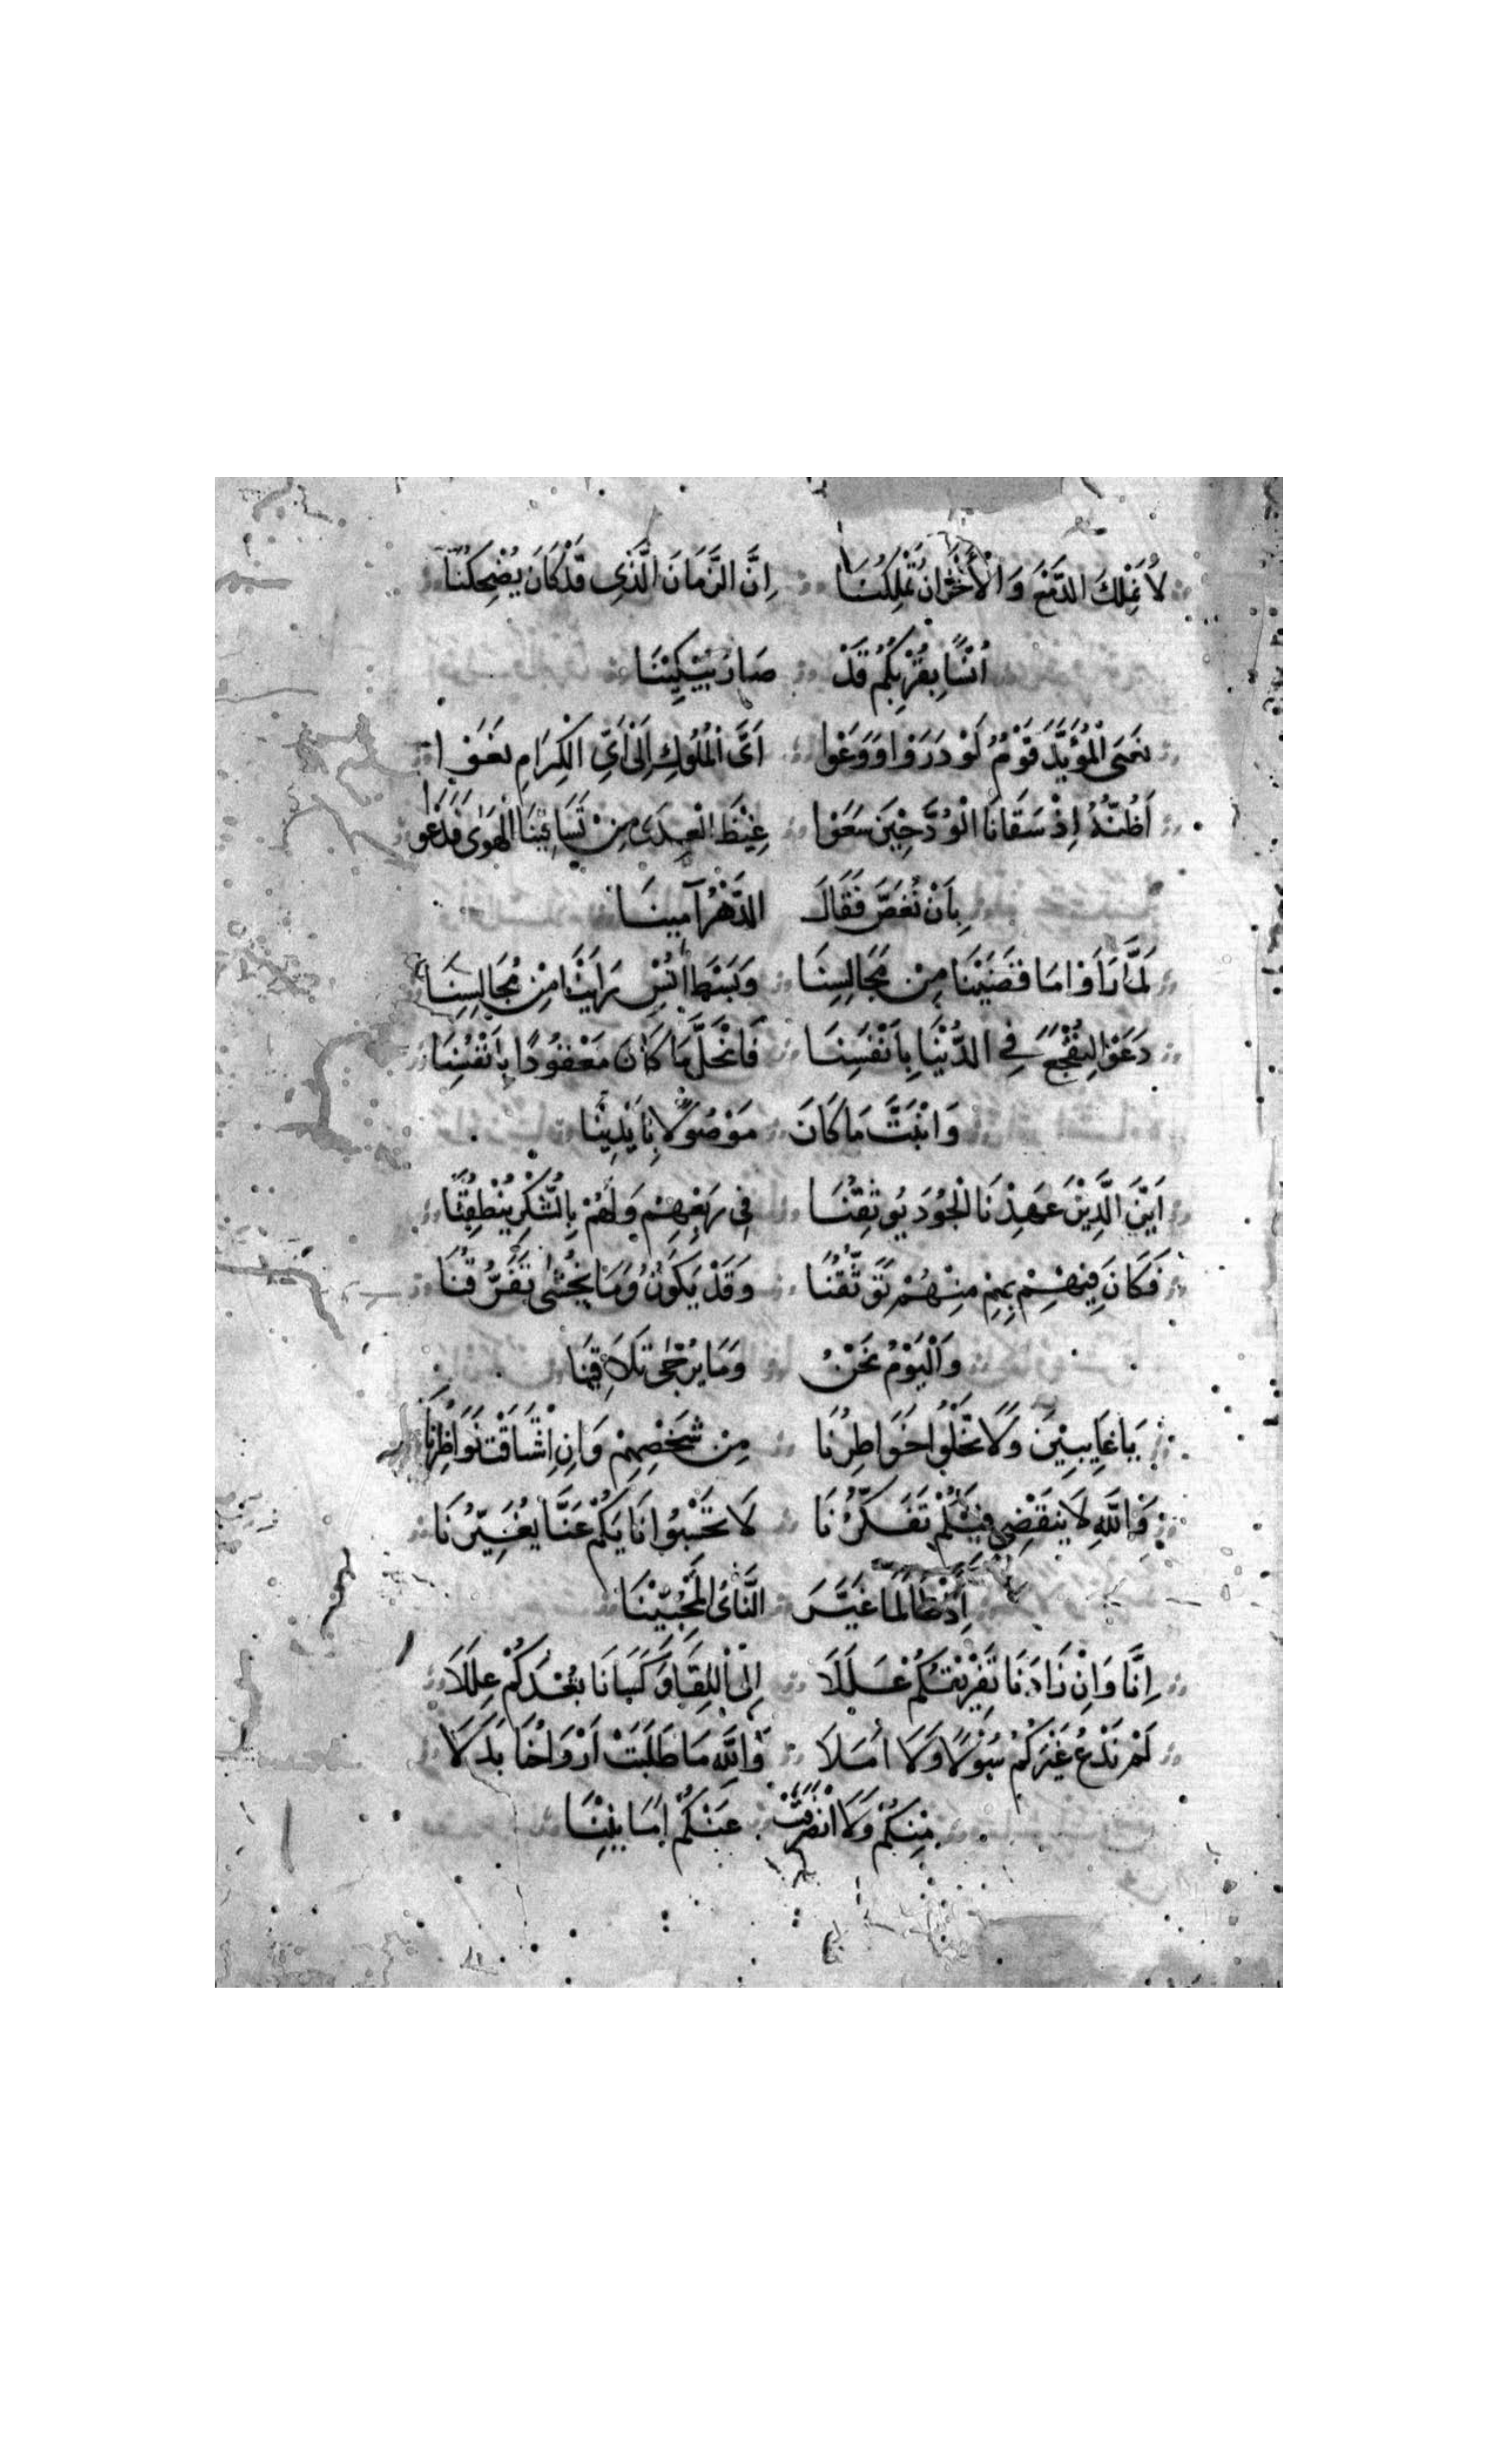 لَا نَمْلِكُ الدَّمْعَ وَالْأَحْزَانُ تَمْلِكُنَا اِنَّ الزَّمَانَ الَّذِى قَدْ كَانَ يُضْحِكُنَا
اُنْسًا بِقُرْبِكُمُ قَدْ صَارَ يُبْكِيْنَا
حِمَى الْمُؤَيَّدَ قَوْمٌ لَوْ دَرَوْا وَوَعَوْا اَىَّ الْمُلُوكِ اِلَى اَىِّ الْكِرَامِ
اَظُنُّهُ اِذْ سَقَانَا الْوُدَّ حِيْنَ سَعَوْا غِيْظَ الْعِدَى مِنْ تَسَاقِيْنَا الْهَوَى فَدَعَوْا
بِاَنْ نَغَصَّ فَقَالَ الدَّهْرُ آمِينَا
لَمَّا رَاَوْا مَا قَضَيْنَا مِنْ مَجَالِسِنَا وَبَسْطَ اُنْسٍ رَاَيْنَا مِنْ مُجَالِسِنَا
دَعَوْا لِنُفْجَعَ فِي الدُّنْيَا بِاَنْفَسِنَا فَانْحَلَّ مَا كَانَ مَعْقُودًا بِاَنْفُسِنَا
وَانْبَتَّ مَا كَانَ مَوْصُولًا بِاَيْدِيْنَا
اَيْنَ الَّذِيْنَ عَهِدْنَا الْجُودَ يُوثِقُنَا فِى رَبْعِهِمْ وَلَهُمْ بِالشُّكْرِ يُنْطِقُنَا
فَكَانَ فِيْهِمْ بِهِمْ مِنْهُمْ تَوَثُّقُنَا وَقَدْ نَكُونُ وَمَا يُخْشَى تَفَرُّقُنَا
وَالْيَوْمُ نَحْنُ وَمَا يُرْجَى تَلَاقِيْنَا
يَا غَايِبِيْنَ وَلَا تَخْلُوا خَوَاطِرُنَا مِنْ شَخْصِهِمْ وَاِنِ اشْتَاقَتْ نَوَاظِرُنَا
وَاللهِ لَا يَنْقَضِى فِيْكُمْ تَفَكُّرُنَا لَا تَحْسَبُوا نَايَكُمْ عَنَّا يُغَيِّرُنَا
اِذْ طَالَمَا غَيَّرَ النَّاىُ الْمُحِبِّيْنَا
اِنَّا وَاِنْ زَادَنَا تَفْرِيْقُكُمْ غَلَلَا اِلَى اللِّقَا وَكَسَانَا بُعْدُكُمْ عِلَلَا
لَمْ نَدْعُ غَيْرَكُمْ سُوْلًا وَلَا اَمَلَا وَاللهِ مَا طَلَبَتْ اَرْوَاحُنَا بَدَلَا
مِنْكُمْ وَلَا انْصَرَفَتْ عَنْكُمْ اَمَانِيْنَا